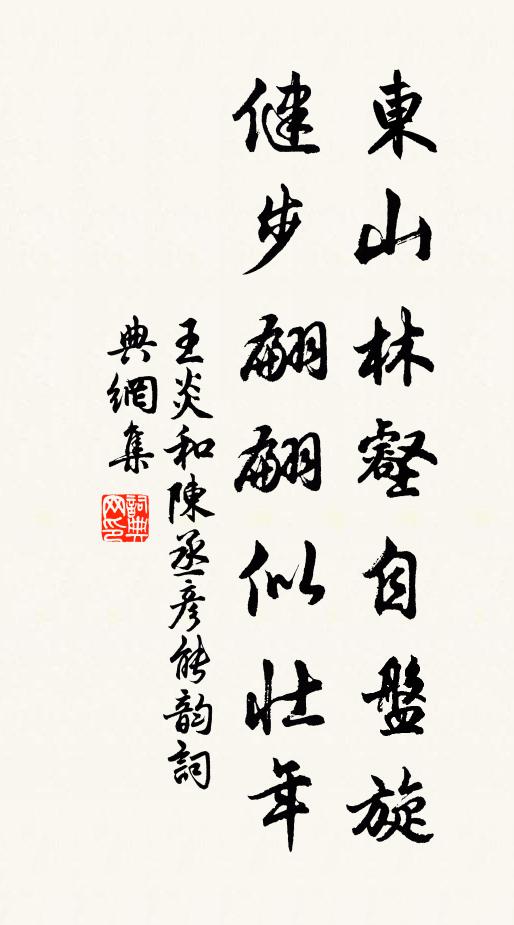 東山林壑自盤旋
健步翩翩似壯年
王炎和陳丞彥能韵詞
典網集
詞典网印